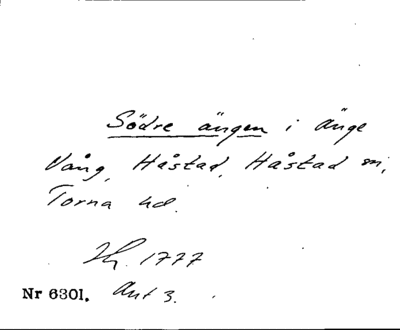 Södre ängen i Änge
Vång, Håstad, Håstad sn,
Torna hd.
1777
Nr 6301. Akt 3.